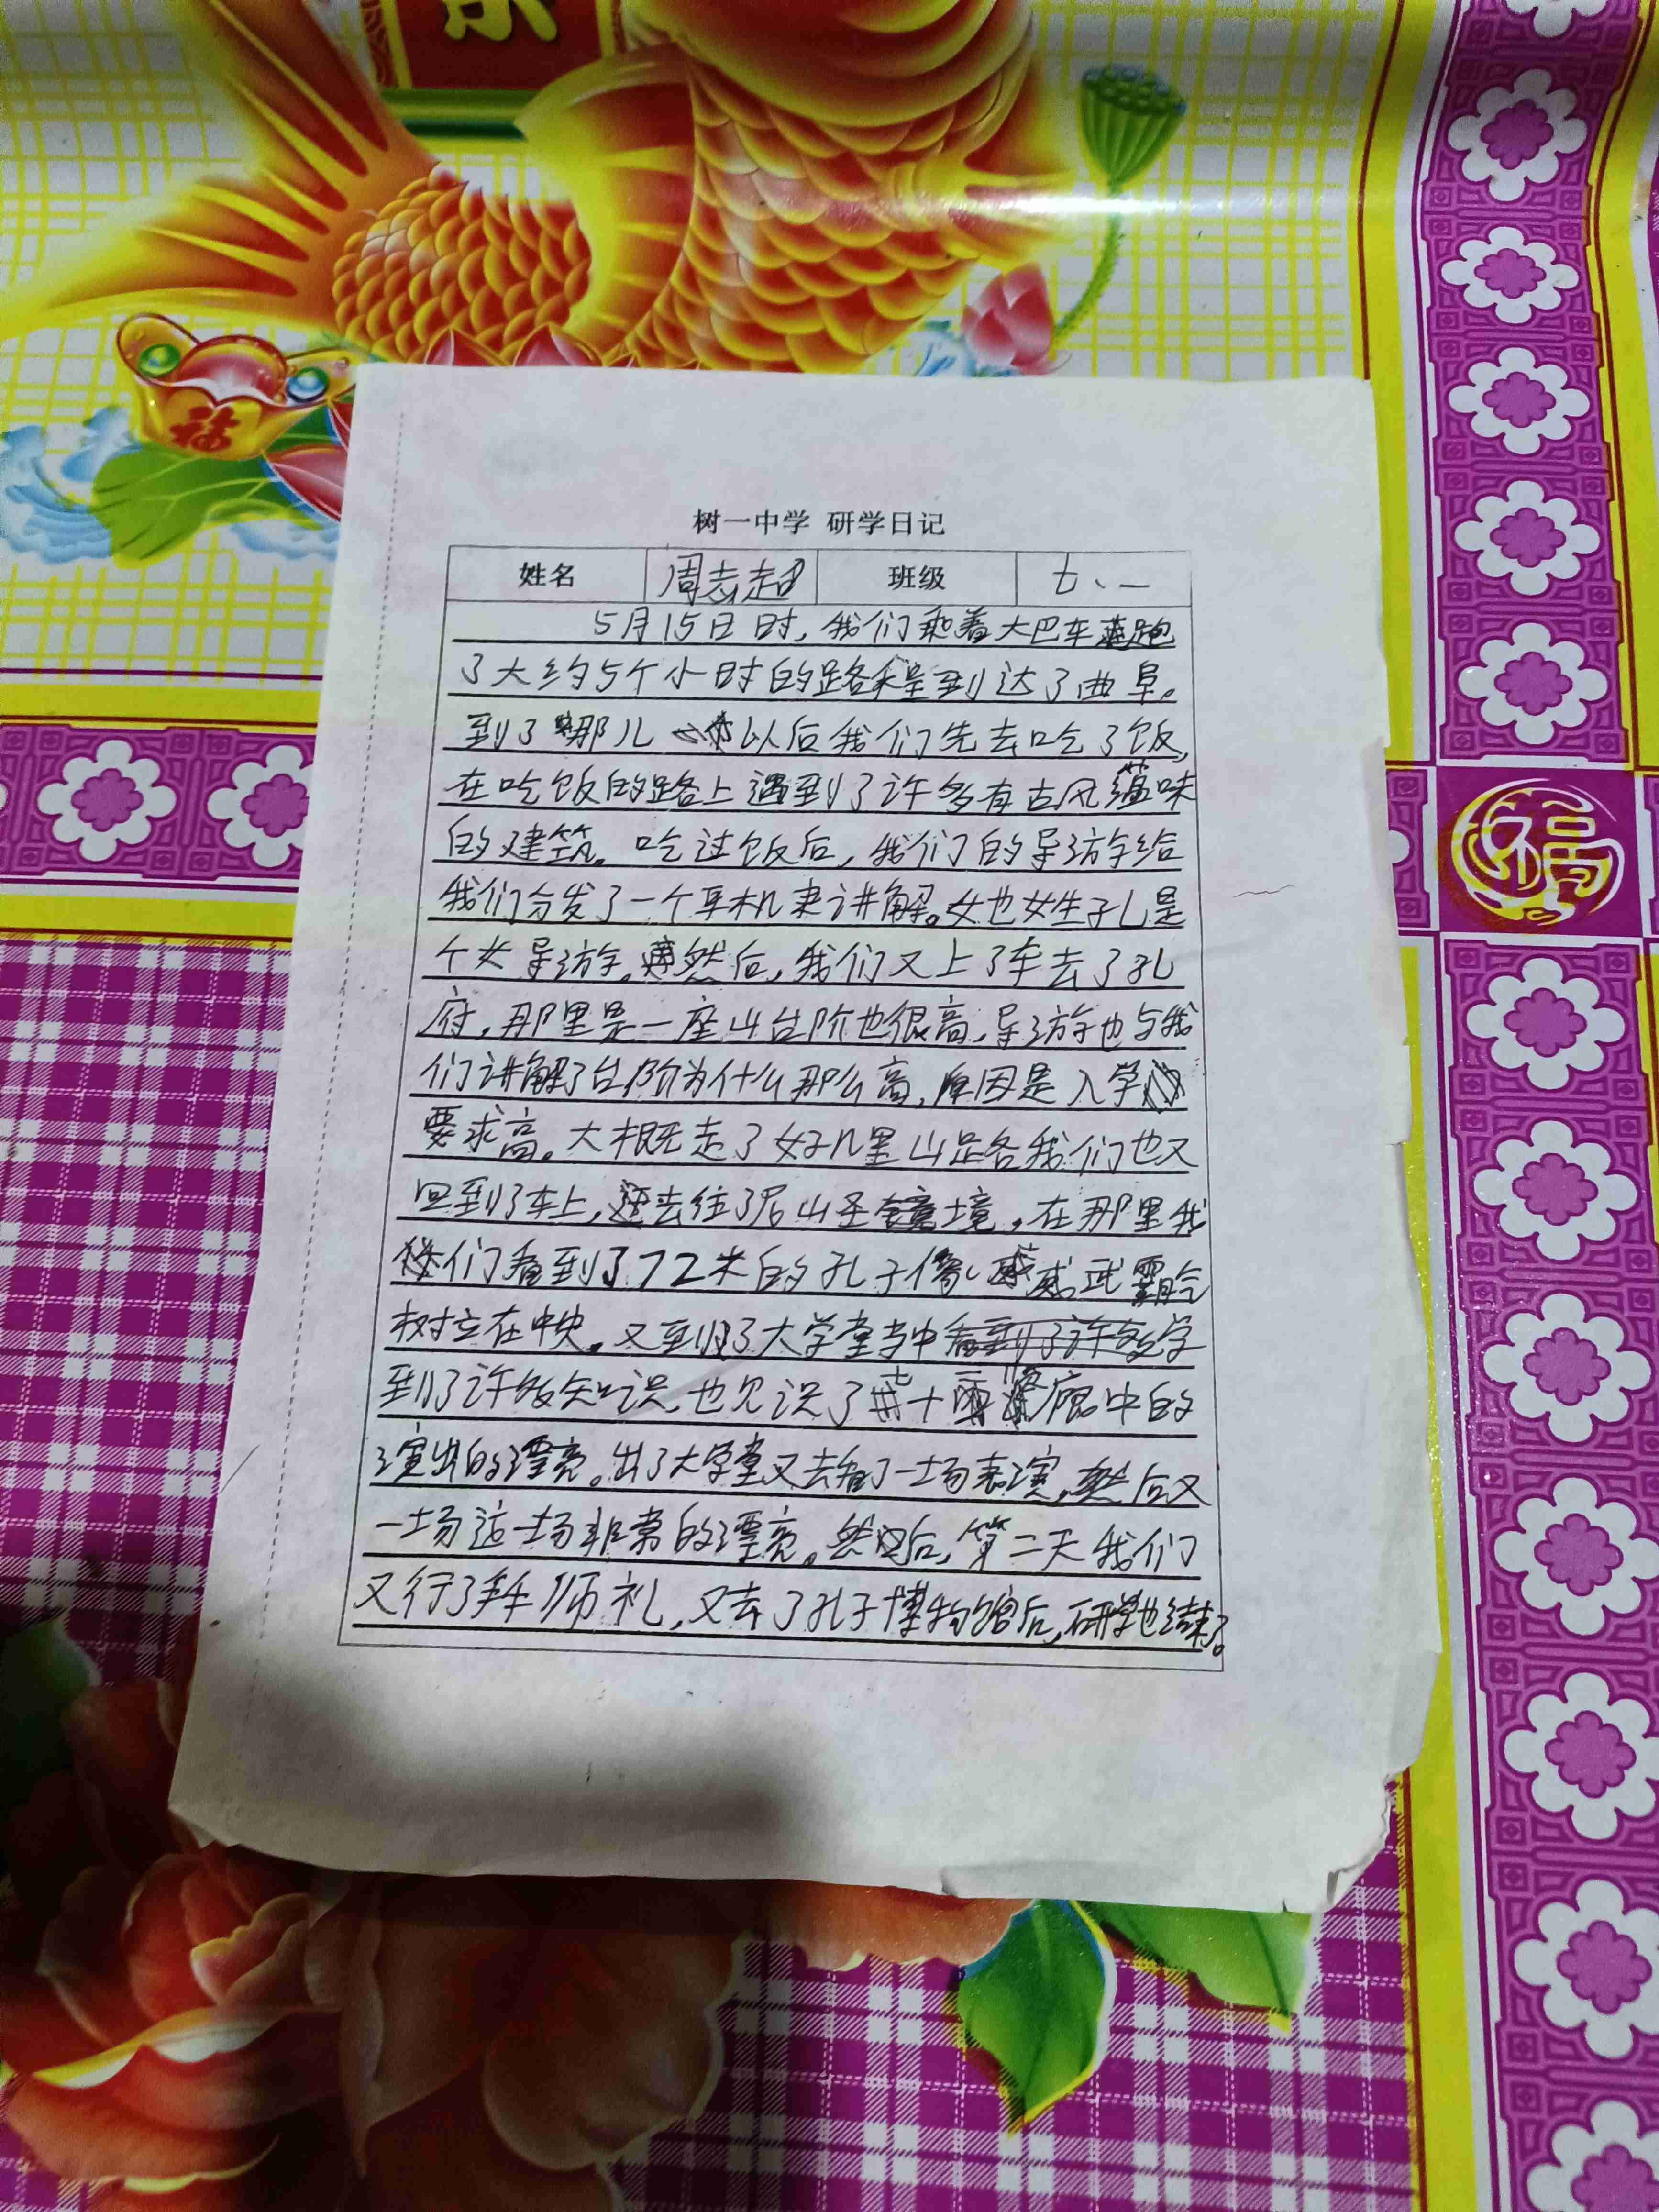 福
树一中学 研学日记
姓名 周志超 班级 七、一
5月15日时,我们乘着大巴车跑
了大约5个小时的路程到达了曲阜。
到了那儿以后我们先去吃了饭,
在吃饭的路上遇到了许多有古风蕴味
的建筑。吃过饭后,我们的导游给
我们分发了一个耳机来讲解。她姓孔是
个女导游。然后,我们又上了车去了孔
府,那里是一座山台阶也很高,导游也与我
们讲解了台阶为什么那么高,原因是入学
要求高。大概走了好几里山路我们也又
回到了车上,去往了尼山圣境。在那里我
们看到了72米的孔子像,威武霸气
树立在中央。又到了大学堂当中学
到了许多知识,也见识了七十二廊中的
演出的漂亮。出了大学堂又去看了一场表演,然后又
一场这一场非常的漂亮。然后,第二天我们
又行了拜师礼,又去了孔子博物馆后,研学也结束了。
福